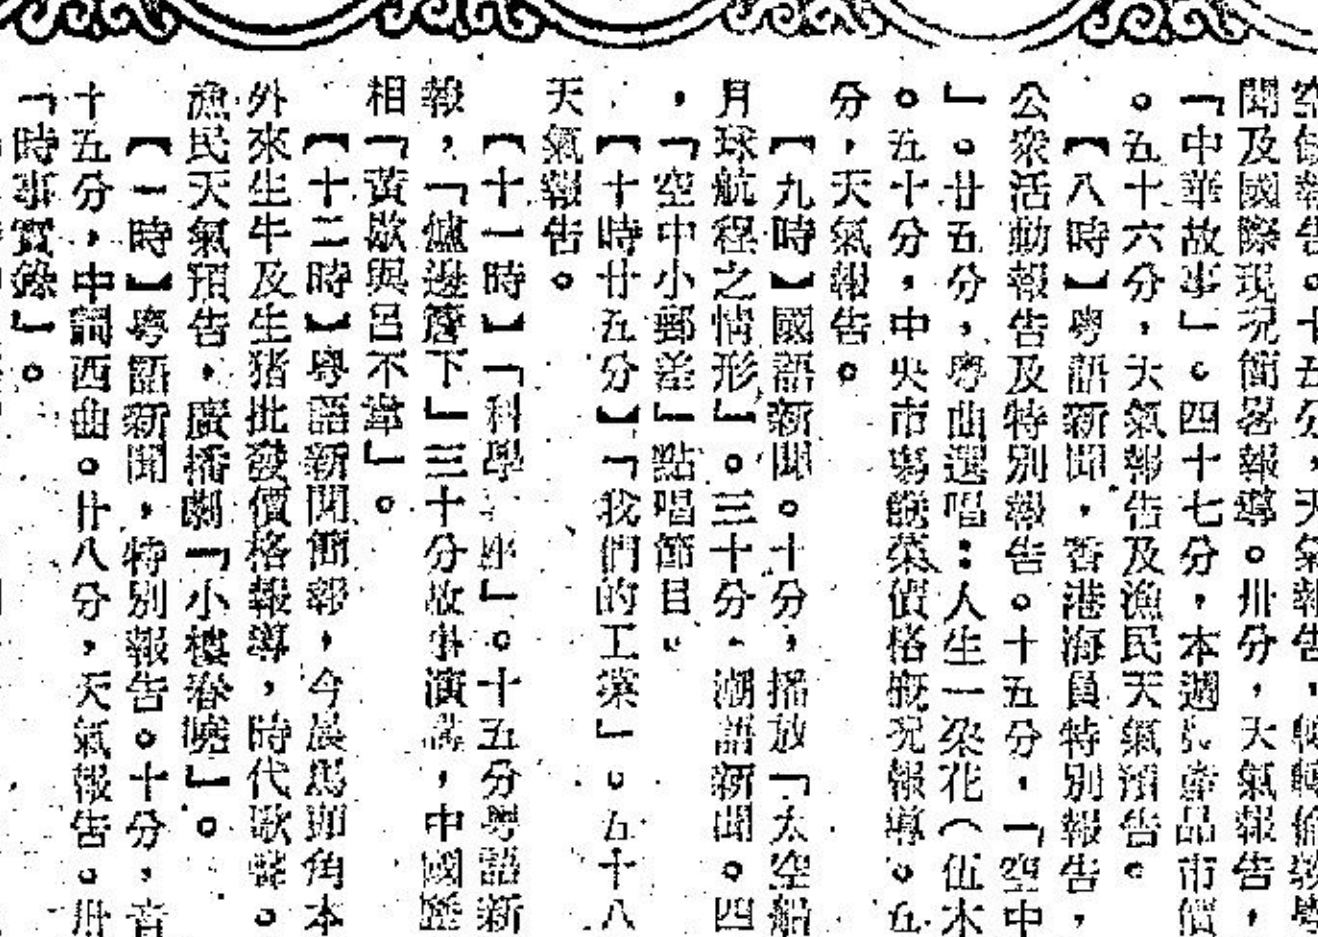 報告。十五分，天氣報告，
聞及國際現况簡畧報導。卅分，天氣報告，
「中華故事」。四十七分，本週產品市價
。五十六分，天氣報告及漁民天氣預告。
【八時】粵語新聞，香港海員特別報告，
公衆活動報告及特別報告。十五分，「空中
」。廿五分，粵曲選唱：人生一朶花（伍木
。五十分，中央市塲蔬菜價格概况報導。五
分，天氣報告。
【九時】國語新聞。十分，播放「太空船
月球航程之情形」。三十分，潮語新聞。四
，「空中小郵差」點唱節目。
【十時廿五分】「我們的工業」。五十八
天氣報告。
【十一時】「科學　座」。十五分粵語新
報，「爐邊簷下」三十分故事演講，中國歷
相「黃歇與呂不韋」。
【十二時】粵語新聞簡報，今晨馬頭角本
外來生牛及生猪批發價格報導，時代歌聲。
漁民天氣預告，廣播劇「小樓春曉」。
【一時】粵語新聞，特別報告。十分，音
十五分，中詞西曲。廿八分，天氣報告。卅
「時事實錄」。